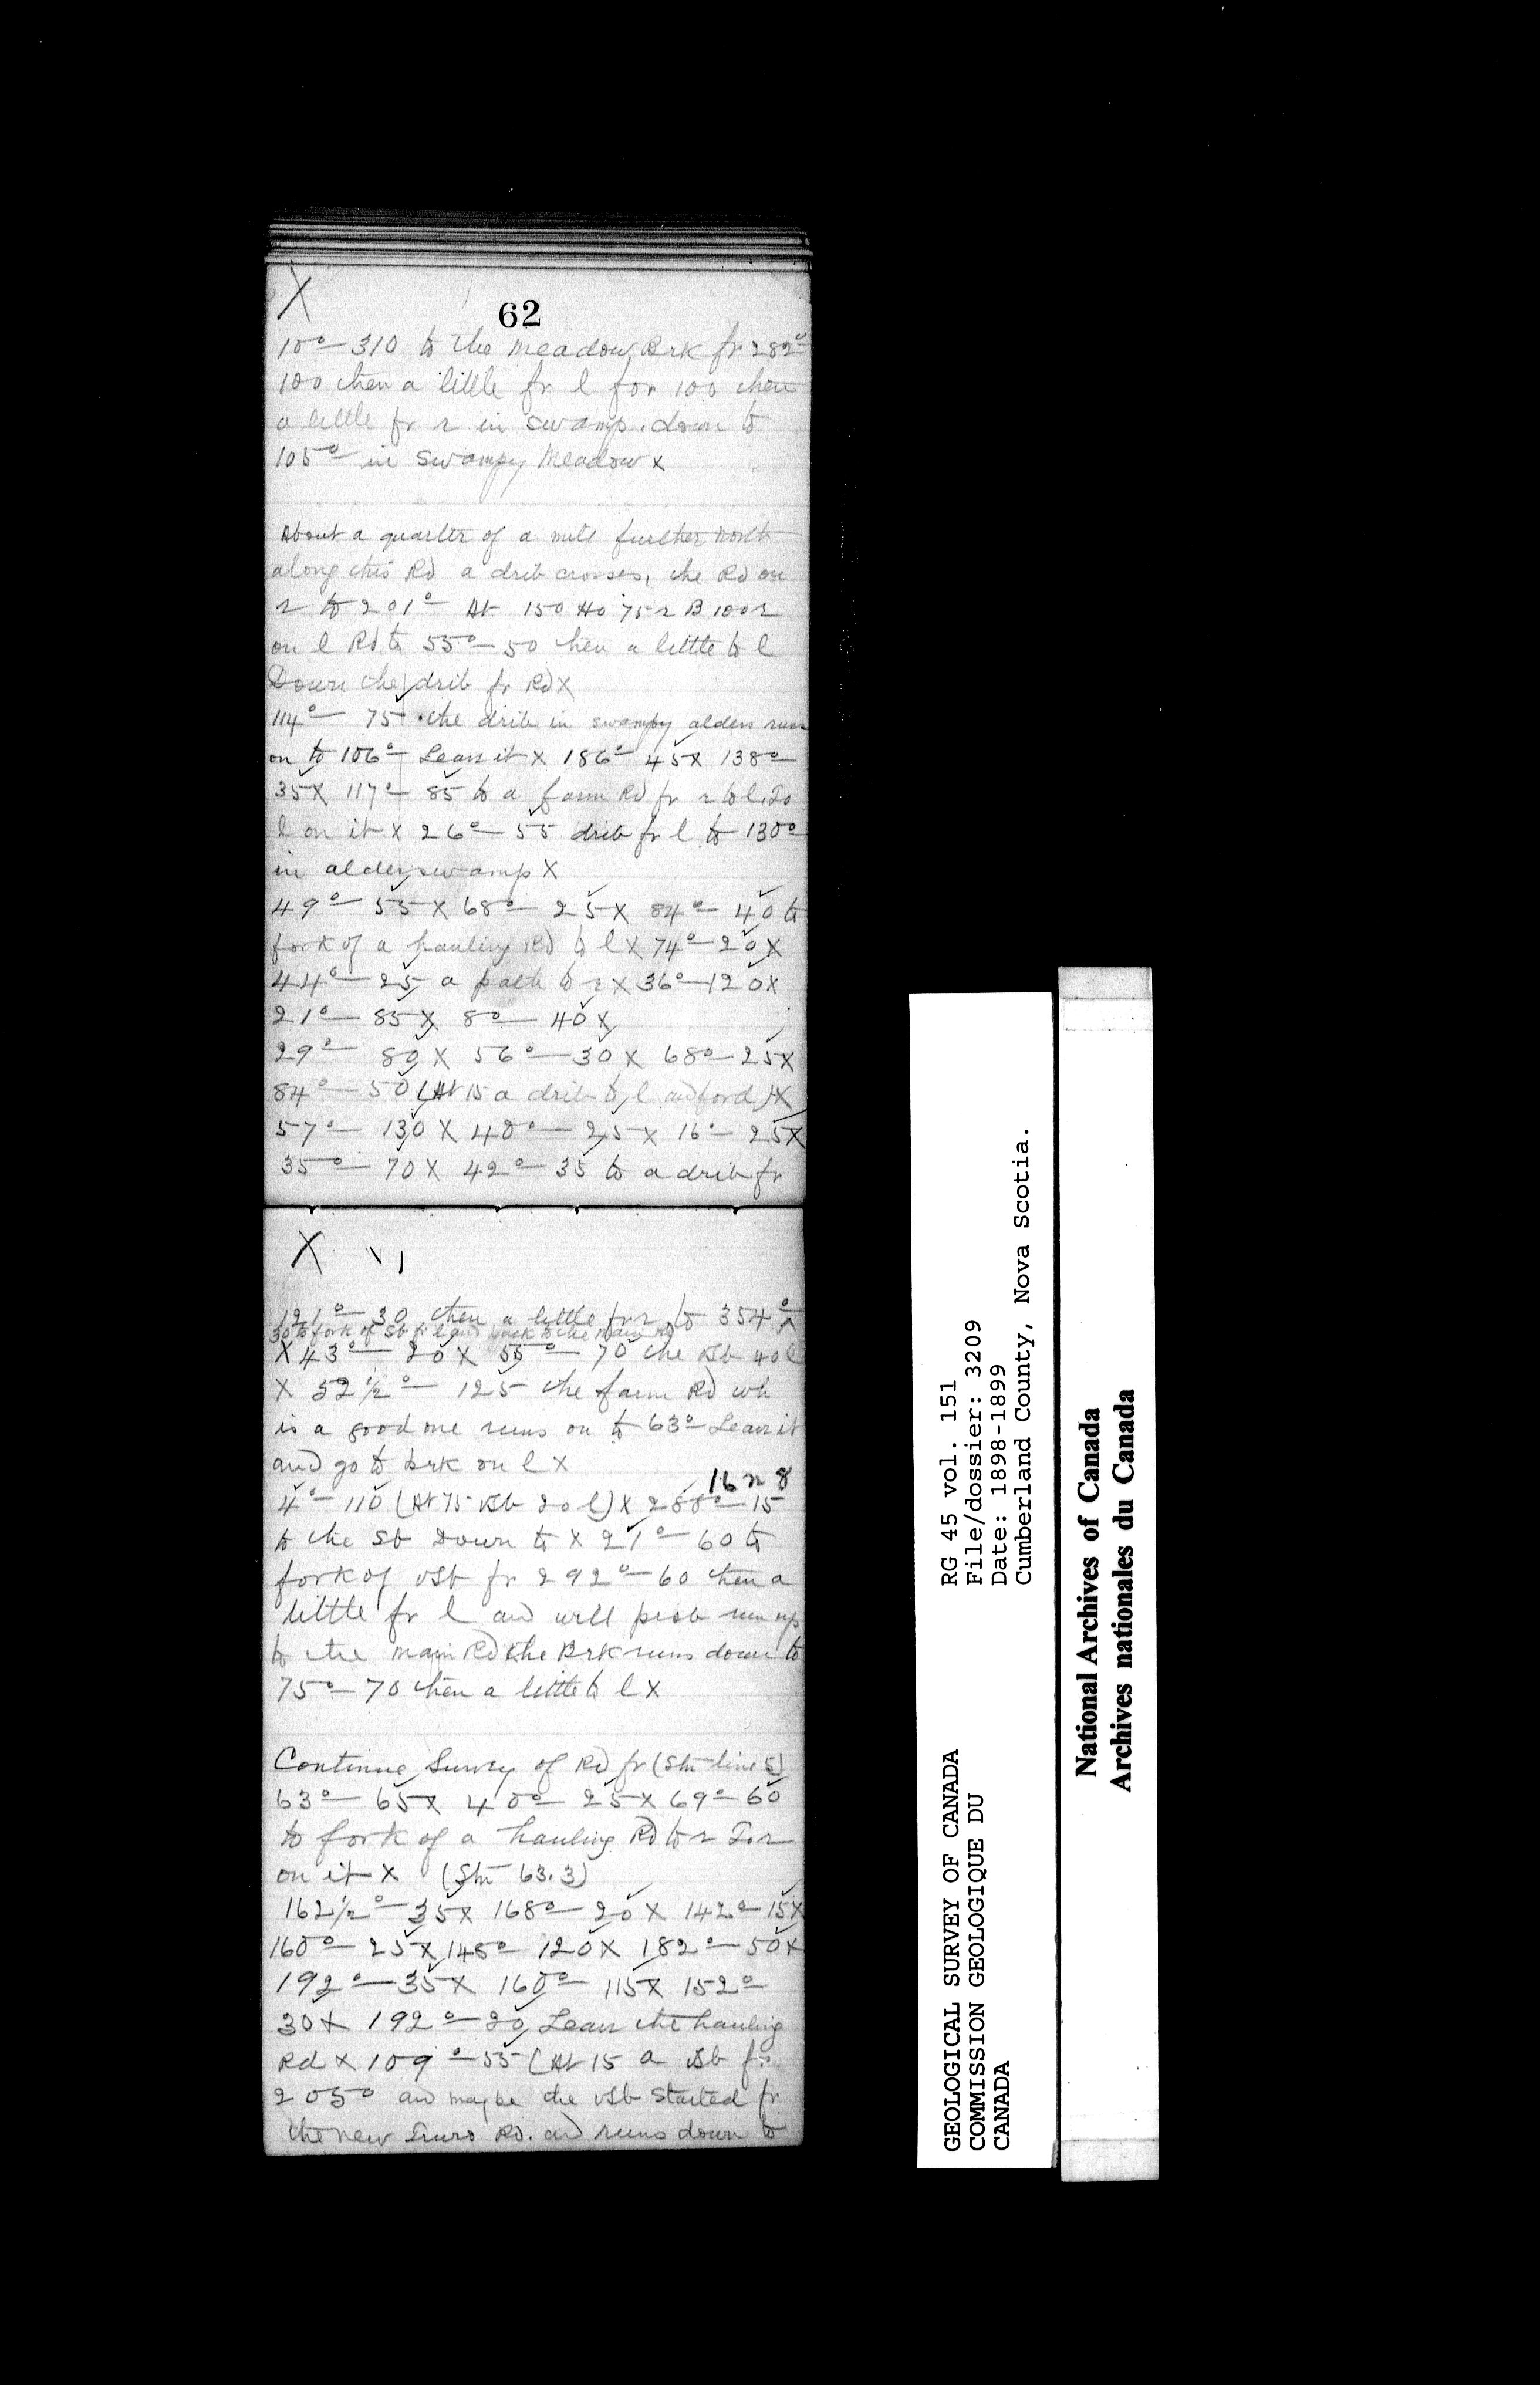 X
62
10°— 310 to the Meadow Brk fr 282°
100 then a little fr l for 100 then
a little fr r in swamp. down to
105° in swampy Meadow x
About a quarter of a mile further north
along this Rd a drib crosses, the Rd on
r to 201° At 150 Ho 75 r B 100 r
on l Rd to 55°— 50 then a little to l
Down the drib fr Rd X
114°— 75 the drib in swampy alders runs
on to 106° Leave it X 186°— 45 X 138°—
35 X 117°— 85 to a farm Rd fr r to l. To
l on it X 26°— 55 drib fr l to 130°
in alder swamp X
49°— 55 X 68°— 25 X 84°— 40 to
fork of a hauling Rd to l X 74°— 20 X
44°— 25 a path to r X 36°— 120 X
21°— 85 X 8°— 40 X
29°— 80 X 56°— 30 X 68°— 25 X
84°— 50 (At 15 a drib to l and ford) X
57°— 130 X 40°— 25 X 16°— 25 X
35°— 70 X 42°— 35 to a drib fr
X
121°— 30 then a little fr r to 354°
30 to fork of Sb fr l and back to the Main Rd
X 43°— 20 X 55°— 70 the vSb 40 l
X 52 1/2°— 125 the farm Rd wh
is a good one runs on to 63° Leave it
and go to brk on l X
16 n 8
4°— 110 (At 75 vSb 20 l) X 288°— 15
to the Sb Down to X 21°— 60 to
fork of vSb fr 292°— 60 then a
little fr l and will prob run up
to the main Rd the Brk runs down to
75°— 70 then a little to l X
Continue Survey of Rd fr (Stn line 5)
63°— 65 X 40°— 25 X 69°— 60
to fork of a hauling Rd to r To r
on it X (Stn 63.3)
162 1/2°— 35 X 168°— 20 X 142°— 15 X
160°— 25 X 148°— 120 X 182°— 50 X
192°— 35 X 160°— 115 X 152°—
30 X 192°— 20 Leave the hauling
Rd X 109°— 55 (At 15 a vSb fr
205° and maybe the vSb started fr
the new Rd. and runs down to
GEOLOGICAL SURVEY OF CANADA
COMMISSION GEOLOGIQUE DU
CANADA
RG 45 vol. 151
File/dossier: 3209
Date: 1898-1899
Cumberland County, Nova Scotia.
National Archives of Canada
Archives nationales du Canada